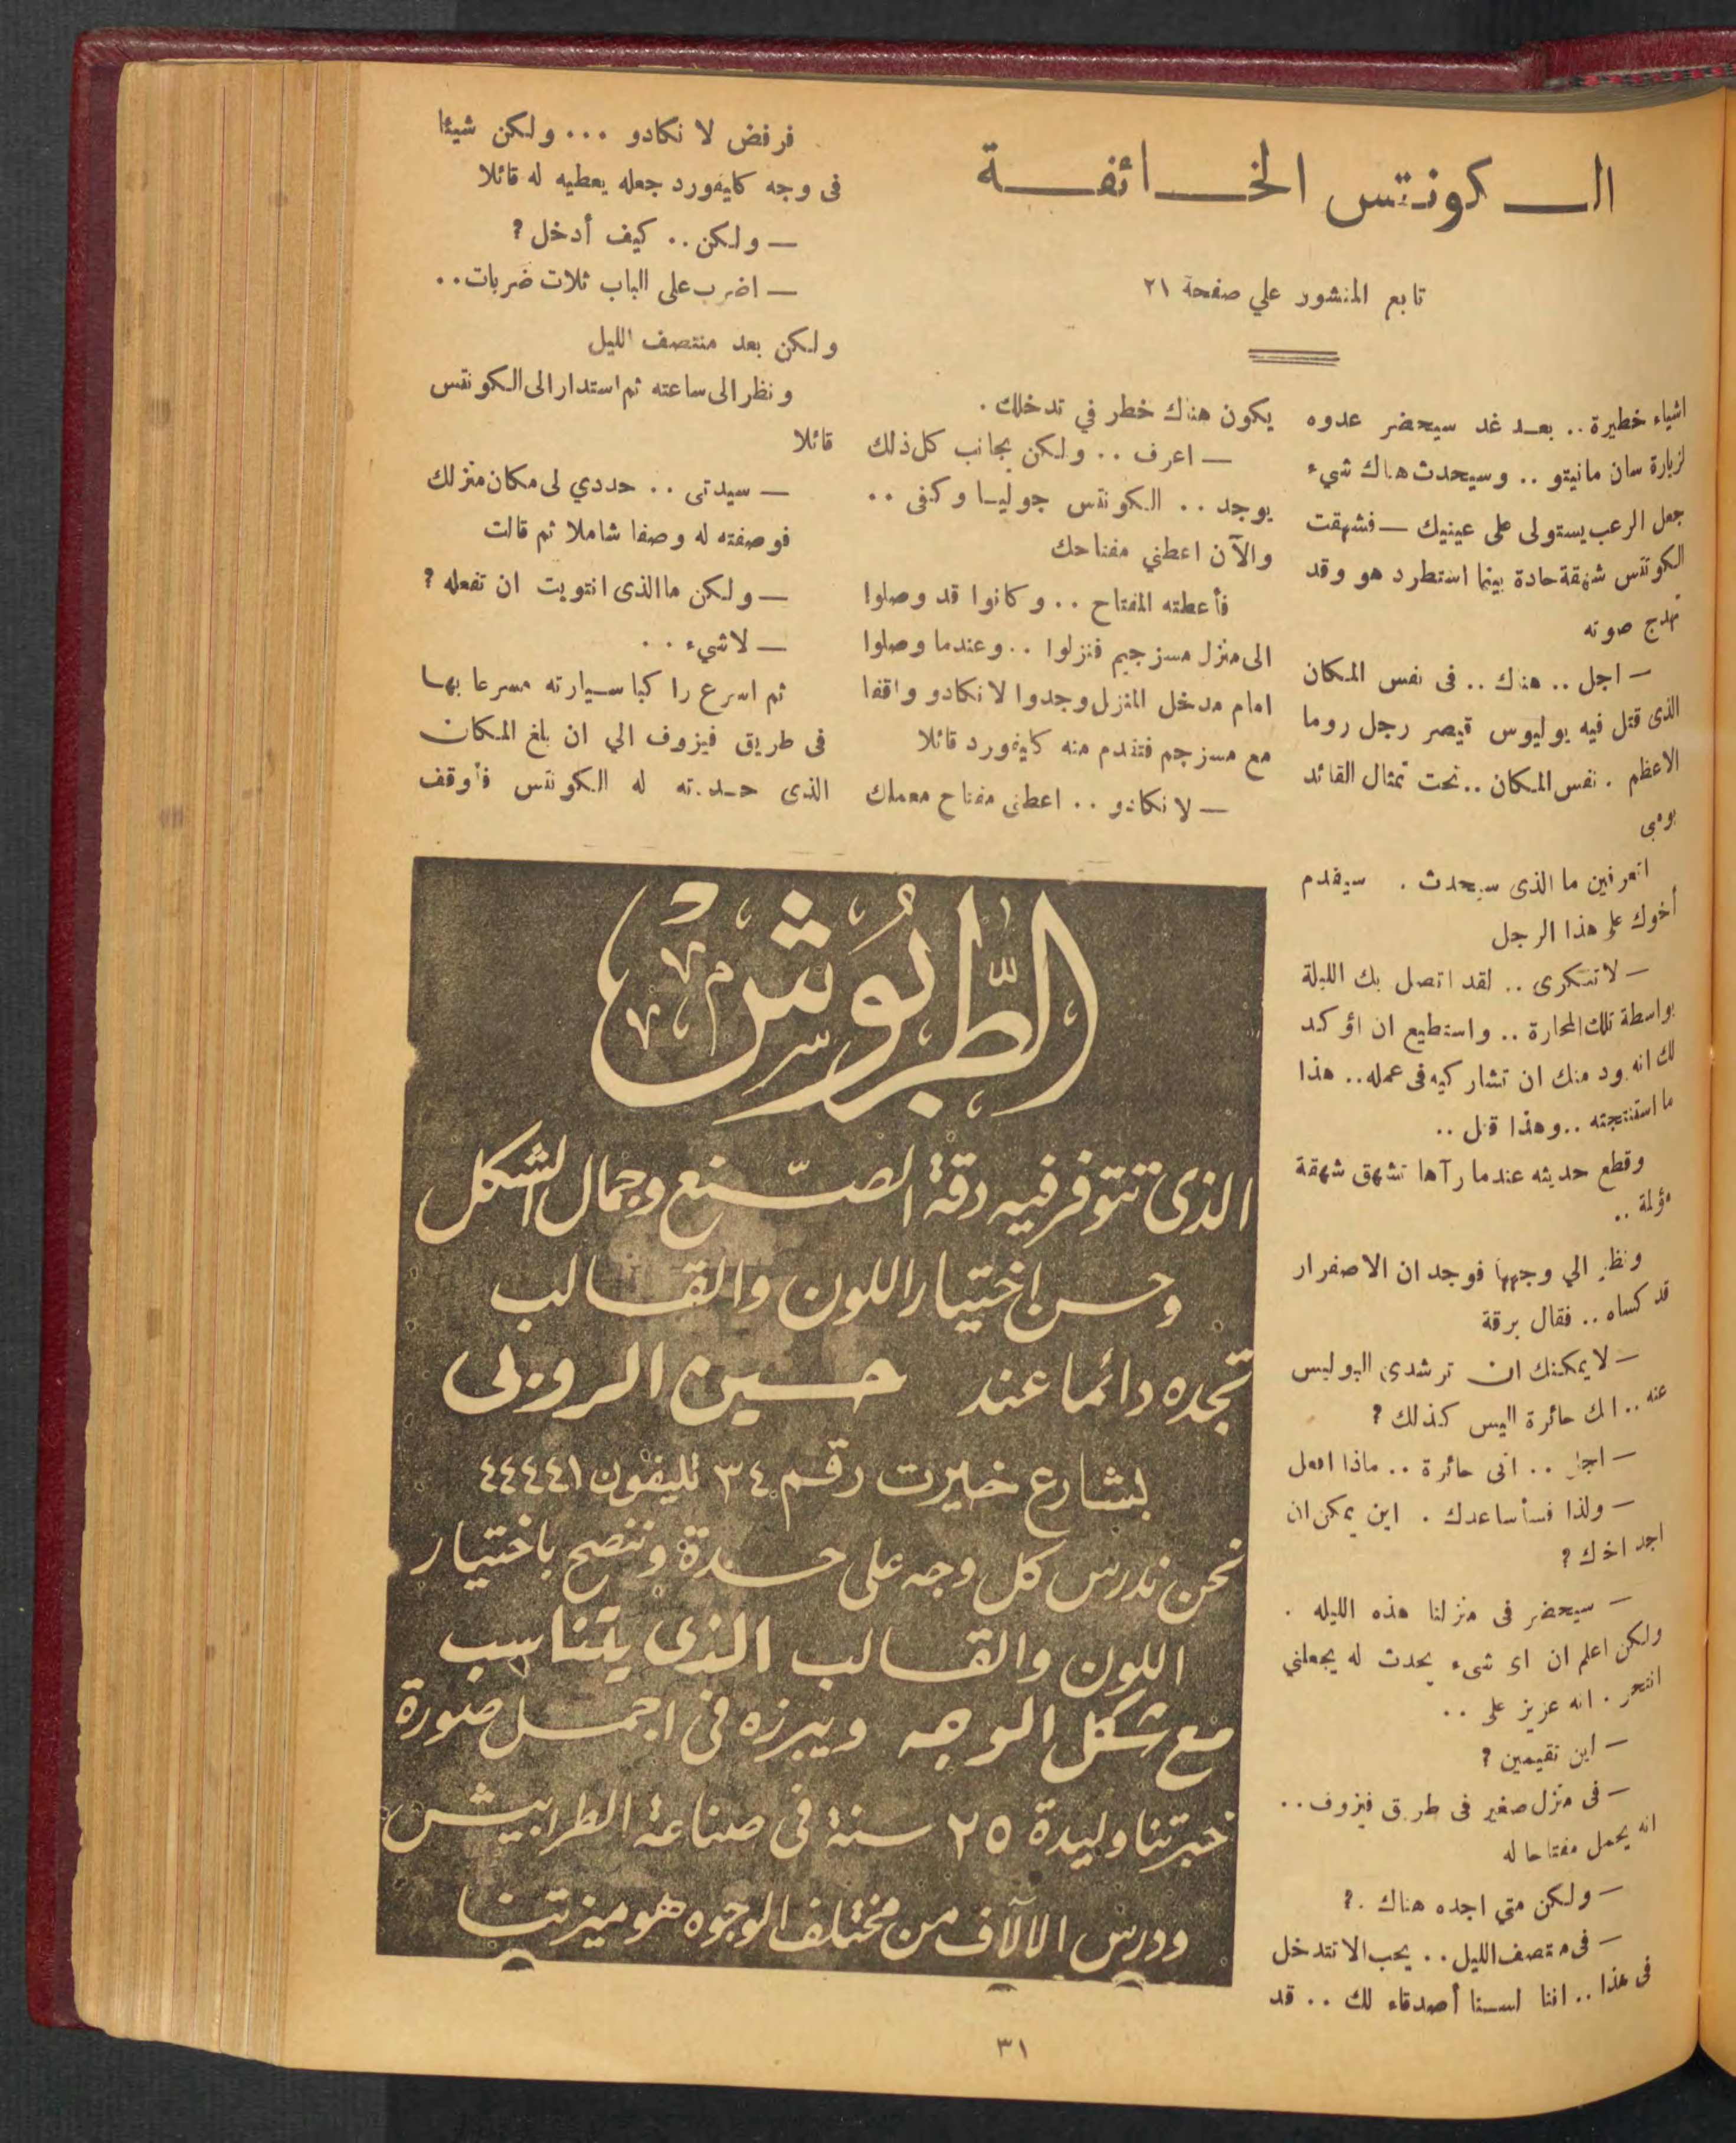 الكونتس الخائفة
تابع المنشور علي صفحة ٢١
اشياء خطيرة .. بعد غد سيحضر عدوه
لزيارة سان مانيتو .. وسيحدث هناك شيء
جعل الرعب يستولى على عينيك — فشهقت
الكونتس شهقة حادة بينما استطرد هو وقد
تهدج صوته
— اجل .. هناك .. فى نفس المكان
الذى قتل فيه يوليوس قيصر رجل روما
الاعظم . نفس المكان .. تحت تمثال القائد
بومبى
اتعرفين ما الذى سيحدث . سيقدم
أخوك على هذا الرجل
— لا تنكرى .. لقد اتصل بك الليلة
بواسطة تلك المحارة .. واستطيع ان اؤكد
لك انه يود منك ان تشاركيه فى عمله .. هذا
ما استنتجته .. وهذا قبل ..
وقطع حديثه عندما رآها تشهق شهقة
مؤلمة ..
ونظر الي وجهها فوجد ان الاصفرار
قد كساه .. فقال برقة
— لا يمكنك ان ترشدى البوليس
عنه .. انك حائرة اليس كذلك ؟
— اجل .. انى حائرة .. ماذا افعل
— ولذا فسأساعدك . اين يمكن ان
اجد اخاك ؟
— سيحضر فى منزلنا هذه الليله .
ولكن اعلم ان اى شىء يحدث له يجعلني
انتحر . انه عزيز على ..
— اين تقيمين ؟
— فى منزل صغير فى طريق فيزوف ..
انه يحمل مفتاحا له
— ولكن متي اجده هناك .؟
— فى منتصف الليل .. يحب الا تتدخل
فى هذا .. اننا لسنا أصدقاء لك .. قد
يكون هناك خطر في تدخلك .
— اعرف .. ولكن بجانب كل ذلك
يوجد .. الكونتس جوليا وكفى ..
والآن اعطني مفتاحك
فأعطته المفتاح .. وكانوا قد وصلوا
الى منزل مسز جيم فنزلوا .. وعندما وصلوا
امام مدخل المنزل وجدوا لا نكادو واقفا
مع مسز جيم فتقدم منه كايفورد قائلا
— لا نكادو .. اعطنى مفتاح معملك
فرفض لا نكادو ... ولكن شيئا
فى وجه كايفورد جعله يعطيه له قائلا
— ولكن .. كيف أدخل ؟
— اضرب على الباب ثلاث ضربات ..
ولكن بعد منتصف الليل
ونظر الى ساعته ثم استدار الى الكونتس
قائلا
— سيدتى .. حددي لى مكان منزلك
فوصفته له وصفا شاملا ثم قالت
— ولكن ما الذى انتويت ان تفعله ؟
— لاشيء ..
ثم اسرع راكبا سيارته مسرعا بها
فى طريق فيزوف الي ان بلغ المكان
الذى حددته له الكونتس فأوقف
الطَّربُوش
الذى تتوفر فيه دقة الصّنع وجمال الشكل
وحسن اختيار اللون والقالب
تجده دائما عند حسين الروبى
بشارع خيرت رقم ٣٤ تليفون ٤٤٤٤١
نحن ندرس كل وجه على حدة وننصح باختيار
اللون والقالب الذى يتناسب
مع شكل الوجه ويبرزه فى اجمل صورة
خبرتنا وليدة ٢٥ سنة فى صناعة الطرابيش
ودرس الالآف من مختلف الوجوه هو ميزتنا
٣١